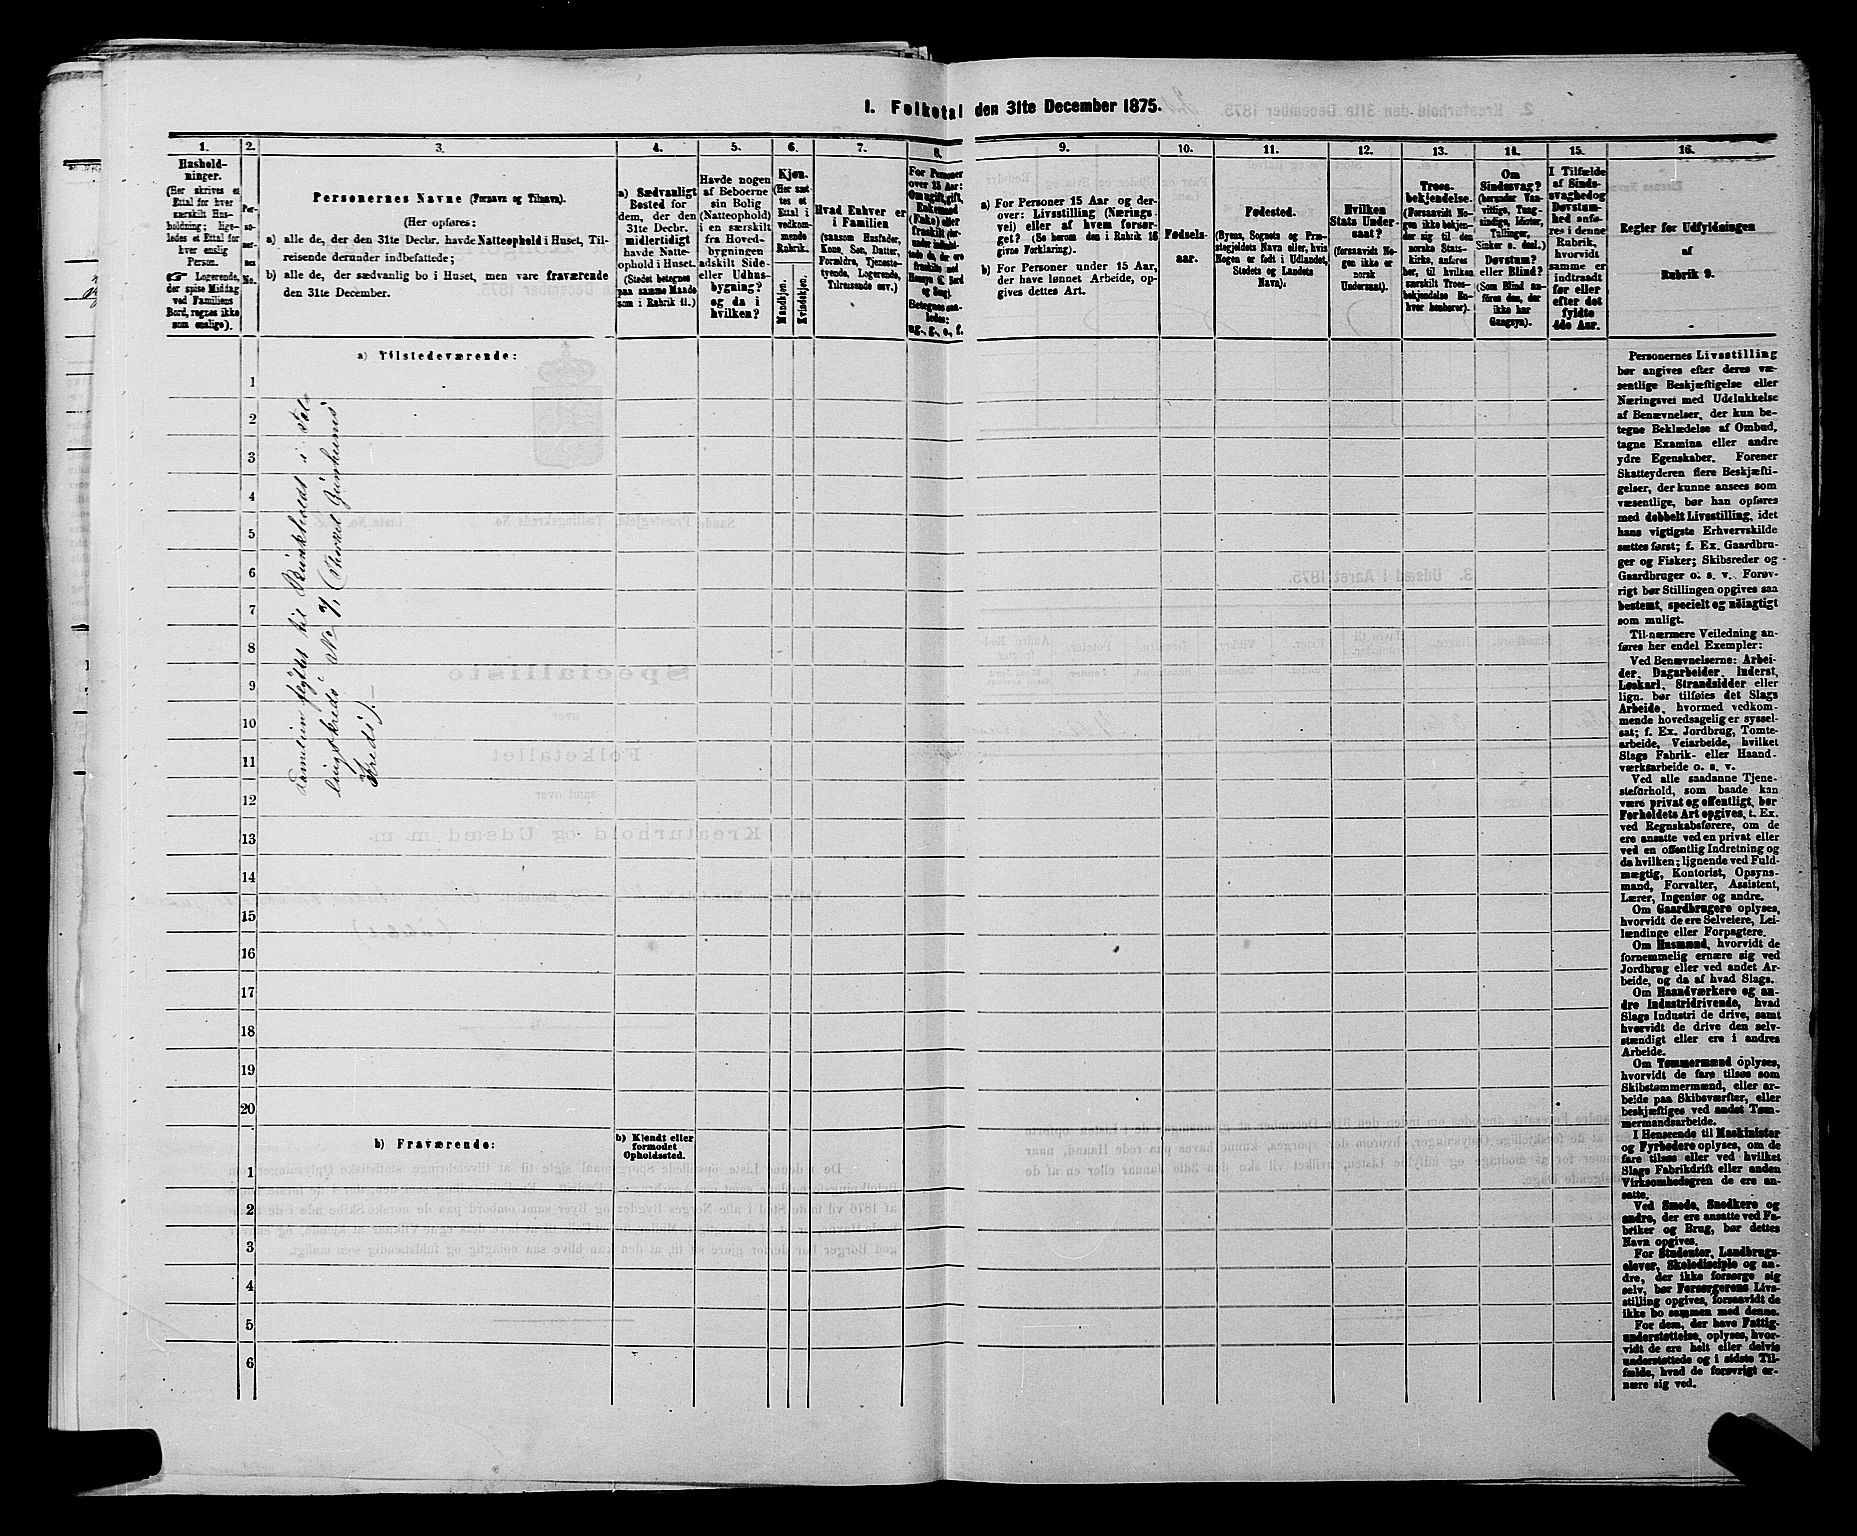 1. Folketal den 31te December 1875.
1.
Hushold-
ninger.
(Her skrives et
Ettal for hver
særskilt Hus-
holdning; lige-
ledes et Ettal for
hver enslig
Person.
Logerende,
der spise Middag
ved Familiens
Bord, regnes ikke
som enslige).
2.
Per-
so-
ner-
nes
No.
3.
Personernes Navne (Fornavn og Tilnavn).
(Her opføres:
a) alle de, der den 31te Decbr. havde Natteophold i Huset, Til-
reisende derunder indbefattede;
b) alle de, der sædvanlig bo i Huset, men vare fraværende
den 31te December.
4.
a) Sædvanligt
Bosted for
dem, der den
31te Decbr.
midlertidigt
havde Natte-
ophold i Huset.
(Stedet betegnes
paa samme Maade
som i Rubrik 11.)
5.
Havde nogen
af Beboerne
sin Bolig
(Natteophold)
i en særskilt
fra Hoved-
bygningen
adskilt Side-
eller Udhus-
bygning?
og da i
hvilken?
6.
Kjøn.
(Her sæt-
tes et
Ettal i
vedkom-
mende
Rubrik.
Mandkjøn.
Kvindekjøn.
7.
Hvad Enhver er
i Familien
(saasom Husfader,
Kone, Søn, Datter,
Forældre, Tjeneste-
tyende, Logerende,
Tilreisende osv.)
8.
For Personer
over 15 Aar:
Om ugift, gift,
Enkemand
(Enke) eller
fraskilt
Betegnes saa-
ledes:
ug., g., e., f.
9.
a) For Personer 15 Aar og der-
over: Livsstilling (Nærings-
vei) eller af hvem forsør-
get? (Se herom den i Rubrik 16
givne Forklaring).
b) For Personer under 15 Aar,
der have lønnet Arbeide, op-
gives dettes Art.
10.
Fødsels-
aar.
11.
Fødested.
(Byens, Sognets og Præ-
stegjeldets Navn eller, hvis
Nogen er født i Udlandet,
Stedets og Landets
Navn).
12.
Hvilken
Stats Under-
saat?
(forsaavidt No-
gen ikke er
norsk
Undersaat).
13.
Troes-
bekjendelse.
(Forsaavidt No-
gen ikke bekjen-
der sig til den
norske Stats-
kirke, anføres
her, til hvilken
særskilt Troes-
bekjendelse En-
hver henhører).
14.
Om
Sindssvag?
(herunder Van-
vittige, Tung-
sindige, Idioter,
Tullinger,
Sinker o. desl.)
Døvstum?
eller Blind?
(Som Blind an-
føres den, der
ikke har
Gangsyn).
15.
I Tilfælde
af Sinds-
svaghed og
Døvstum-
hed anfø-
res i denne
Rubrik,
hvorvidt
samme er
indtraadt
før eller
efter det
fyldte
4de Aar.
16.
Regler for Udfyldningen
af
Rubrik 9.
a) Tilstedeværende:
1
2
3
4
5
6
7
8
9
10
11
12
13
14
15
16
17
18
19
20
Familien flyttet til
lingskreds No
Kreds).
b) Fraværende:
b) Kjendt eller
formodet
Opholdssted.
1
2
3
4
5
6
Personernes Livsstilling
bør angives efter deres væ-
sentlige Beskjæftigelse eller
Næringsvei med Udelukkelse
af Benævnelser, der kun be-
tegne Beklædelse af Ombud,
tagne Examina eller andre
ydre Egenskaber. Forener
Skatteyderen flere Beskjæfti-
gelser, der kunne ansees som
væsentlige, bør han opføres
med dobbelt Livsstilling, idet
hans vigtigste Erhvervskilde
sættes først; f. Ex. Gaardbru-
ger og Fisker; Skibsreder og
Gaardbruger o. s. v. Forøv-
rigt bør Stillingen opgives saa
bestemt, specielt og nøiagtigt
som muligt.
Til nærmere Veiledning an-
føres her endel Exempler:
Ved Benævnelserne: Arbei-
der, Dagarbeider, Inderst,
Løskarl, Strandsidder eller
lign. bør tilføies det Slags
Arbeide, hvormed vedkom-
mende hovedsagelig er syssel-
sat; f. Ex. Jordbrug, Tomte-
arbeide, Veiarbeide, hvilket
Slags Fabrik- eller Haand-
værksarbeide o. s. v.
Ved alle saadanne Tjene-
steforhold, som baade kan
være privat og offentligt, bør
Forholdets Art opgives, t. Ex.
ved Regnskabsførere, om de
ere ansatte ved en privat eller
ved en offentlig Indretning og
da hvilken; lignende ved Fuld-
mægtig, Kontorist, Opsyns-
mand, Forvalter, Assistent,
Lærer, Ingeniør og andre.
Om Gaardbrugere oplyses,
hvorvidt de ere Selveiere, Lei-
lændinge eller Forpagtere.
Om Husmænd, hvorvidt de
fornemmelig ernære sig ved
Jordbrug eller ved andet Ar-
beide, og da af hvad Slags.
Om Haandværkere og an-
dre Industridrivende, hvad
Slags Industri de drive, samt
hvorvidt de drive den selv-
stændigt eller ere i andres
Arbeide.
Om Tømmermænd oplyses,
hvorvidt de fare tilsøs som
Skibstømmermænd, eller ar-
beide paa Skibsværfter, eller
beskjæftiges ved andet Tøm-
mermandsarbeide.
I Henseende til Maskinister
og Fyrbødere oplyses, om de
fare tilsøs eller ved hvilket
Slags Fabrikdrift eller anden
Virksomhedsgren de ere an-
satte.
Ved Smede, Snedkere og
andre, der ere ansatte ved Fa-
briker og Brug, bør dettes
Navn opgives.
For Studenter, Landbrugs-
elever, Skoledisciple og an-
dre, der ikke forsørge sig
selv, bør Forsørgerens Livs-
stilling opgives, forsaavidt de
ikke bo sammen med denne.
For dem, der have Fattig-
understøttelse, oplyses, hvor-
vidt de ere helt eller delvis
understøttede og i sidste Til-
fælde, hvad de forøvrigt er-
nære sig ved.